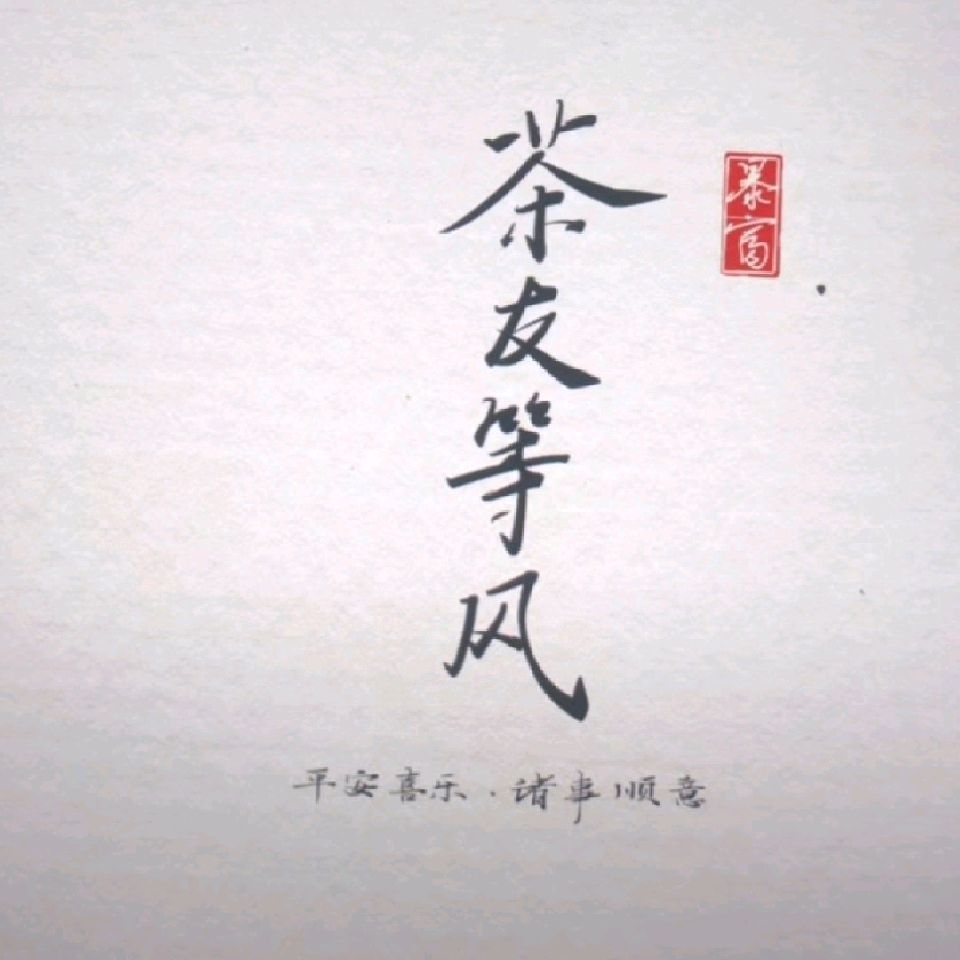 茶友等风
暴富
平安喜乐.诸事顺意